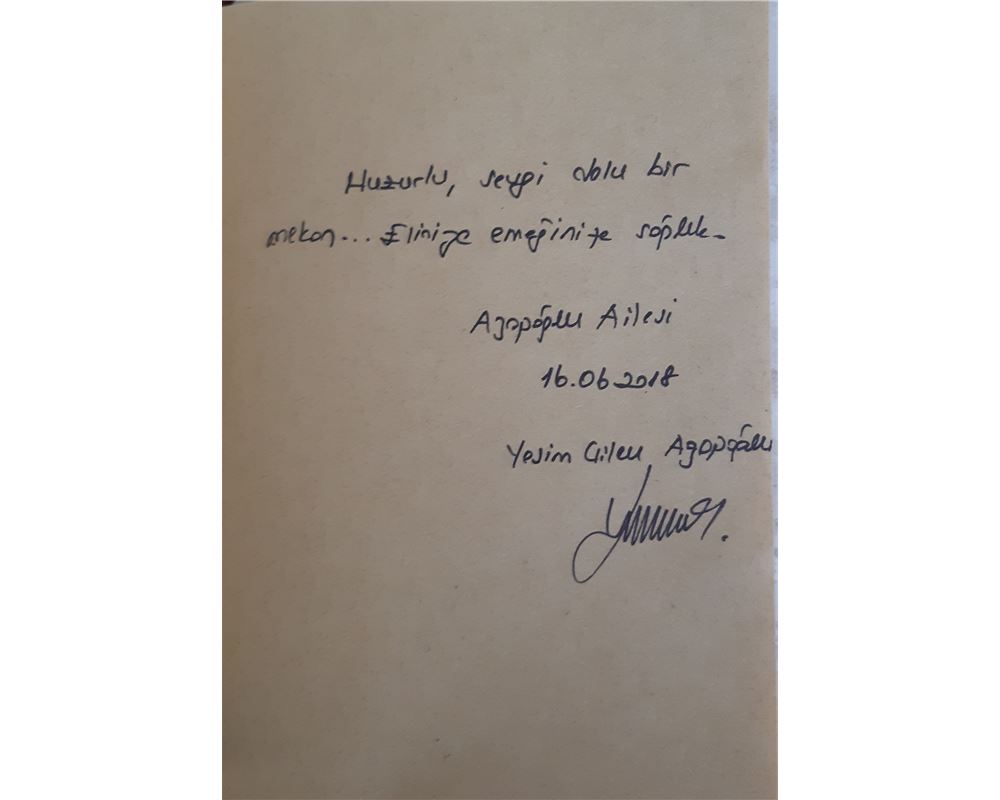 Huzurlu, sevgi dolu bir
mekan... Elinize emeğinize sağlık.
Agopoğlu Ailesi
16.06.2018
Yesim Agopoğlu